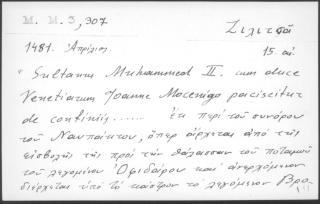 M. M. 3, 307
Σιλιτσα
1481. Ἀπρίλιος. 15. αἰ.
"Sultanus Muhammed II. cum duce
Venetiarum Joanne Mocenigo paciscitur
de confiniis...... Ἐκ περὶ τοῦ συνόρου
τοῦ Ναυπάκτου, ὅπερ ἄρχεται ἀπὸ τῆς
εἰσβολῆς τῆς πρὸς τὴν θάλασσαν τοῦ ποταμοῦ
τοῦ λεγομένου Ὀφιδάρου καὶ ἀνερχόμενον
διέρχεται ὑπὸ τὸ κάστρον τὸ λεγόμενον Βρα